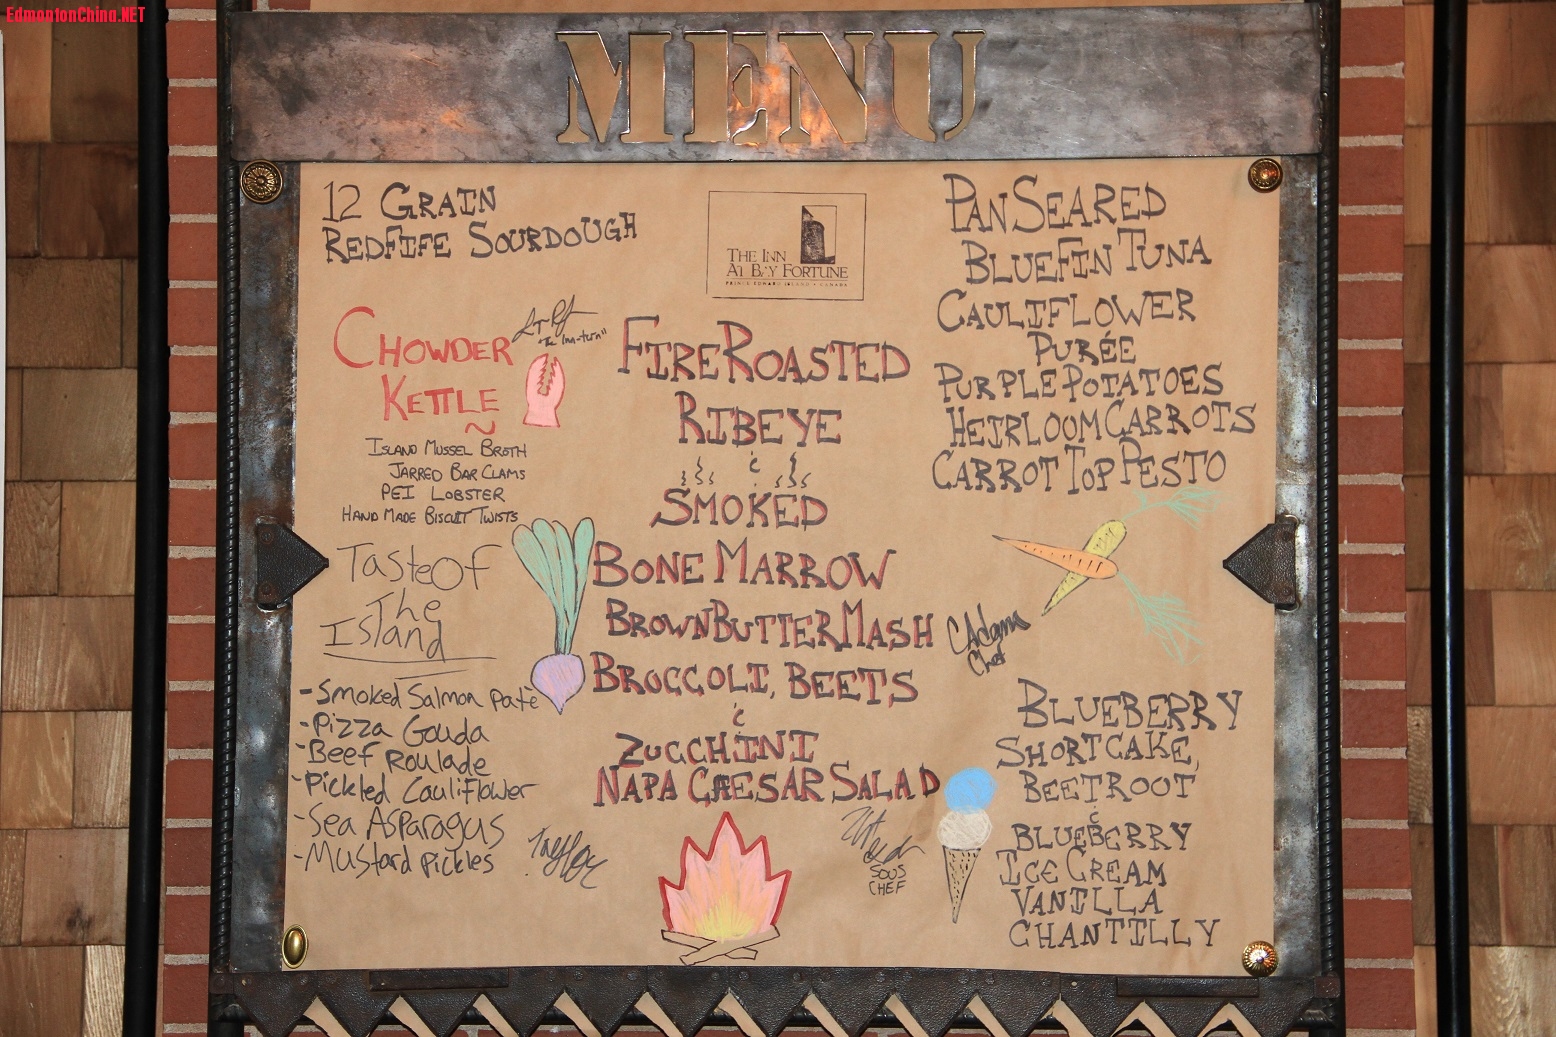 EdmontonChina.NET
MENU
12 GRAIN
REDFIFE SOURDOUGH
CHOWDER
KETTLE
~
ISLAND MUSSEL BROTH
JARRED BAR CLAMS
PEI LOBSTER
HAND MADE BISCUIT TWISTS
Taste Of
The
Island
- Smoked Salmon Paté
- Pizza Gouda
- Beef Roulade
- Pickled Cauliflower
- Sea Asparagus
- Mustard Pickles
Taylor
THE INN
AT BAY FORTUNE
PRINCE EDWARD ISLAND • CANADA
FIRE ROASTED
RIBEYE
&
SMOKED
BONE MARROW
BROWN BUTTER MASH
BROCCOLI, BEETS
&
ZUCCHINI
NAPA CAESAR SALAD
SOUS
CHEF
PAN SEARED
BLUEFIN TUNA
CAULIFLOWER
PURÉE
PURPLE POTATOES
HEIRLOOM CARROTS
CARROT TOP PESTO
CAdams
Chef
BLUEBERRY
SHORTCAKE,
BEETROOT
&
BLUEBERRY
ICE CREAM
VANILLA
CHANTILLY